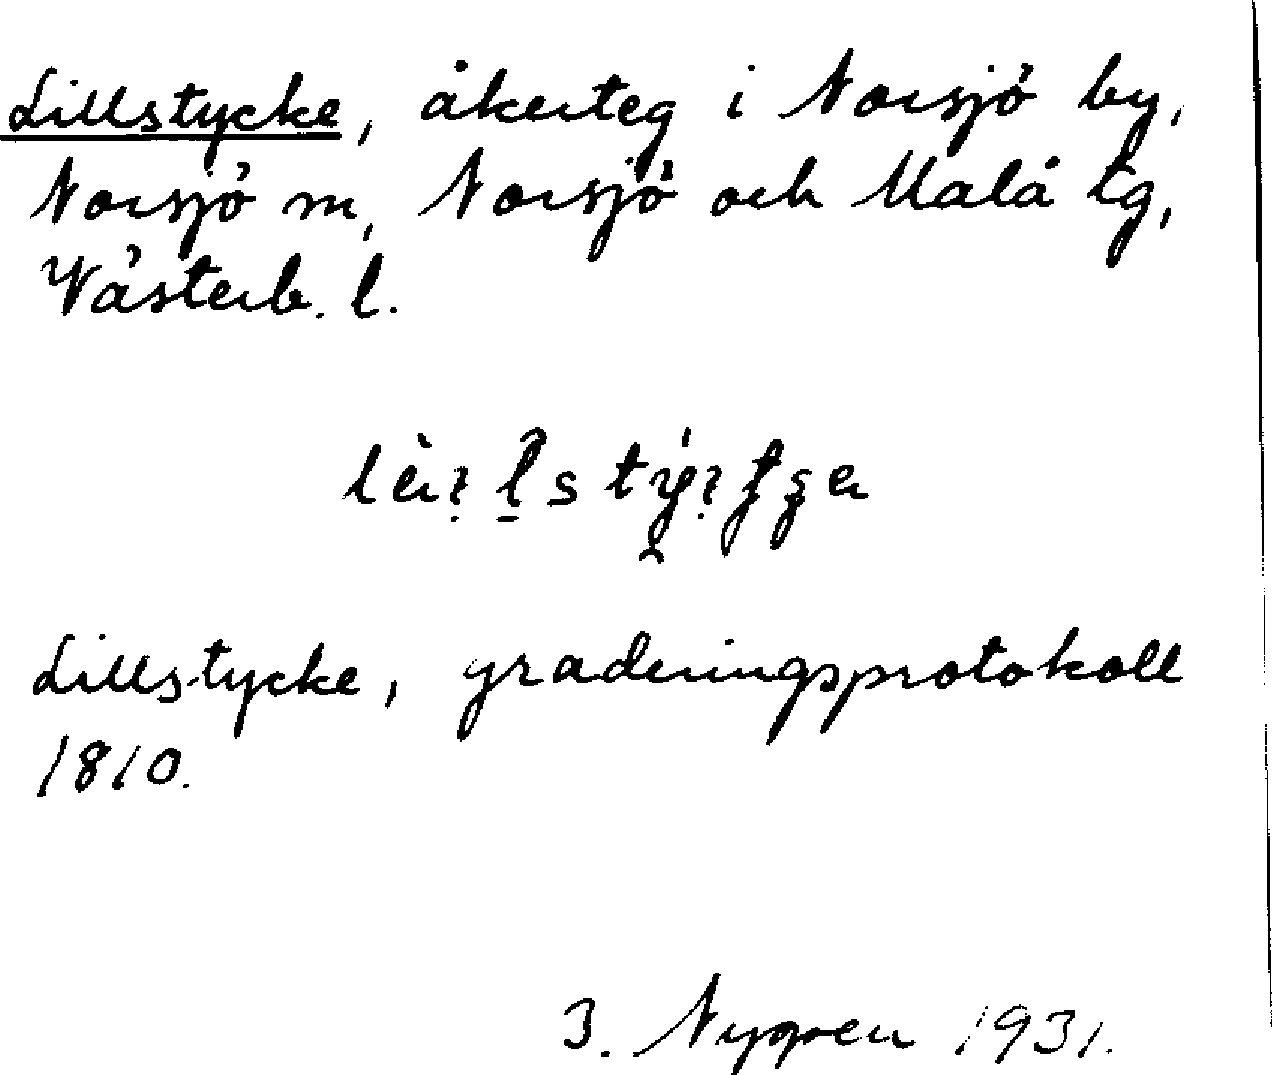 Lillstycke, åkerteg i Norsjö by,
Norsjö sn, Norsjö och Malå tg,
Västerb. l.
Lillstycke, graderingsprotokoll
1810.
J. Nygren 1931.